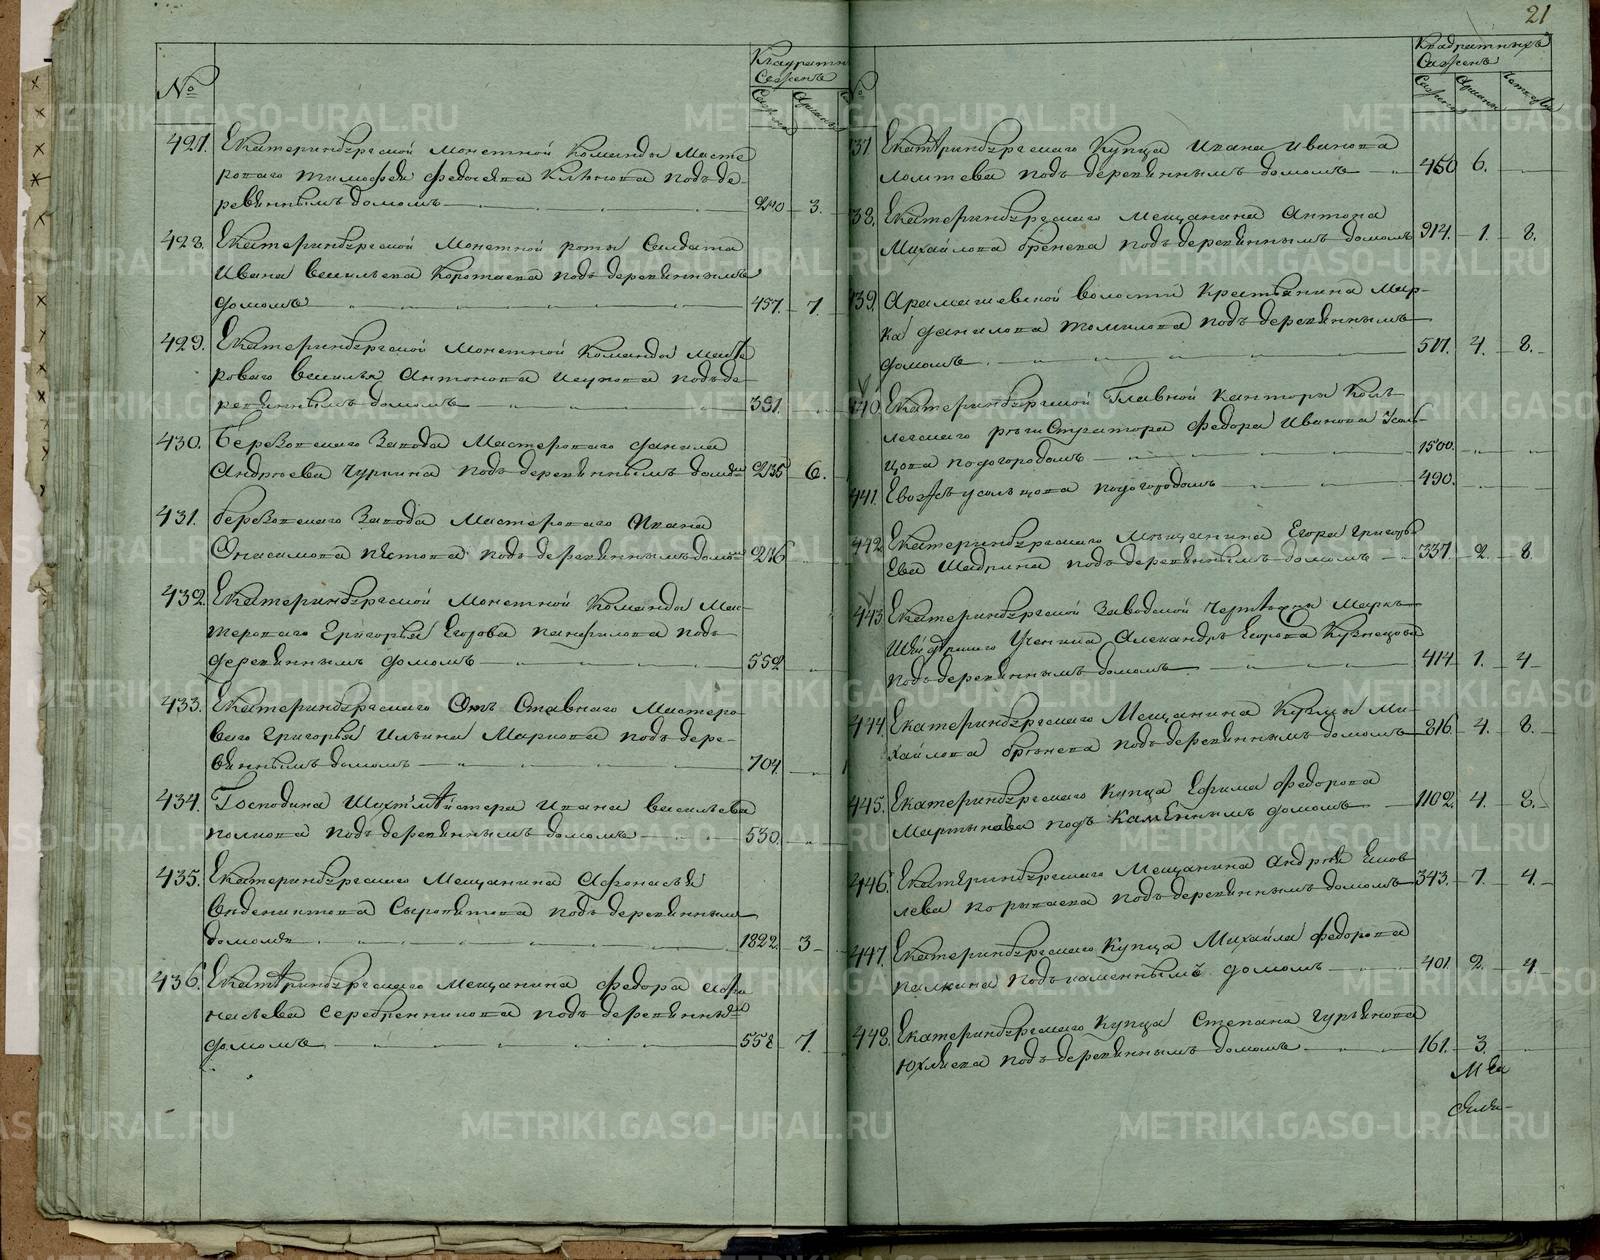 21
№
Квадратн
Сажень
Сажени
Аршины
427. Екатеринбургской Монетной Команды Масте
роваго Тимофея Федосеева Клюкова подъ де-
ревяннымъ домомъ 240 3.
428. Екатеринбургской Монетной роты Солдата
Ивана Васильева Коротаева подъ деревяннымъ
домомъ 457. 7.
429. Екатеринбургской Монетной Команды Масте
роваго Василья Антонова подъ де-
ревяннымъ домомъ 391.
430. Березовскаго Завода Мастероваго Данила
Андреева Чуркина подъ деревяннымъ домомъ 235 6.
431. Березовскаго Завода Мастероваго Ивана
Онисимова подъ деревяннымъ домомъ 216
432. Екатеринбургской Монетной Команды Мас-
тероваго Григорья Егорова Панфилова подъ
деревяннымъ домомъ 552
433. Екатеринбургскаго Отъ Ставнаго Мастеро-
ваго Григорья Ильина Маркова подъ дере-
вяннымъ домомъ 704.
434. Господина Шихтмейстера Ивана Васильева
Полкова подъ деревяннымъ домомъ 530.
435. Екатеринбургскаго Мещанина Афонасья
Сыропятова подъ деревяннымъ
домомъ 1822. 3
436. Екатеринбургскаго Мещанина Федора Афо
насьева Серебренникова подъ деревянны
домомъ 558 7.
№
Квадратныхъ
Сажень
Сажени
Аршины
Четверти
37. Екатеринбургскаго Купца Ивана Иванова
Ломтева подъ деревяннымъ домомъ 450 6.
38. Екатеринбургскаго Мещанина Антона
Михайлова Бренева подъ деревяннымъ домомъ 914. 1. 8.
39. Арамашевской волости Крестьянина Мар-
ка Данилова Томилова подъ деревяннымъ
домомъ 517. 4. 8.
440. Екатеринбургской Главной Канторы Кол-
лежскаго региСтратора Федора Иванова Усоль
цова подогородомъ 1500.
441. Евожъ усольцова подогородомъ 490.
442. Екатеринбургскаго Мещанина Егора Григорь
Ева Шадрина подъ деревяннымъ домомъ 337. 2. 8
443. Екатеринбургской Заводской Чертежни Маркъ
Шейдерскаго Ученика Александръ Егорова Кузнецова
подъ деревяннымъ домомъ 414 1. 4
444. Екатеринбургскаго Мещанина Кузмы Ми-
хайлова Бренева подъ деревяннымъ домомъ 816 4. 8.
445. Екатеринбургскаго Купца Ефима Федорова
Мартынова подъ КамЕннымъ домомъ 1102. 4. 8.
446. Екатеринбургскаго Мещанина Андрея Емов
лева подъ деревяннымъ домомъ 343. 7. 4.
447. Екатеринбургскаго Купца Михайла Федорова
Палкина подъ каменнымъ домомъ 401. 2. 4
448. Екатеринбургскаго Купца Степана Гурьянова
Юхнева подъ деревяннымъ домомъ 161. 3.